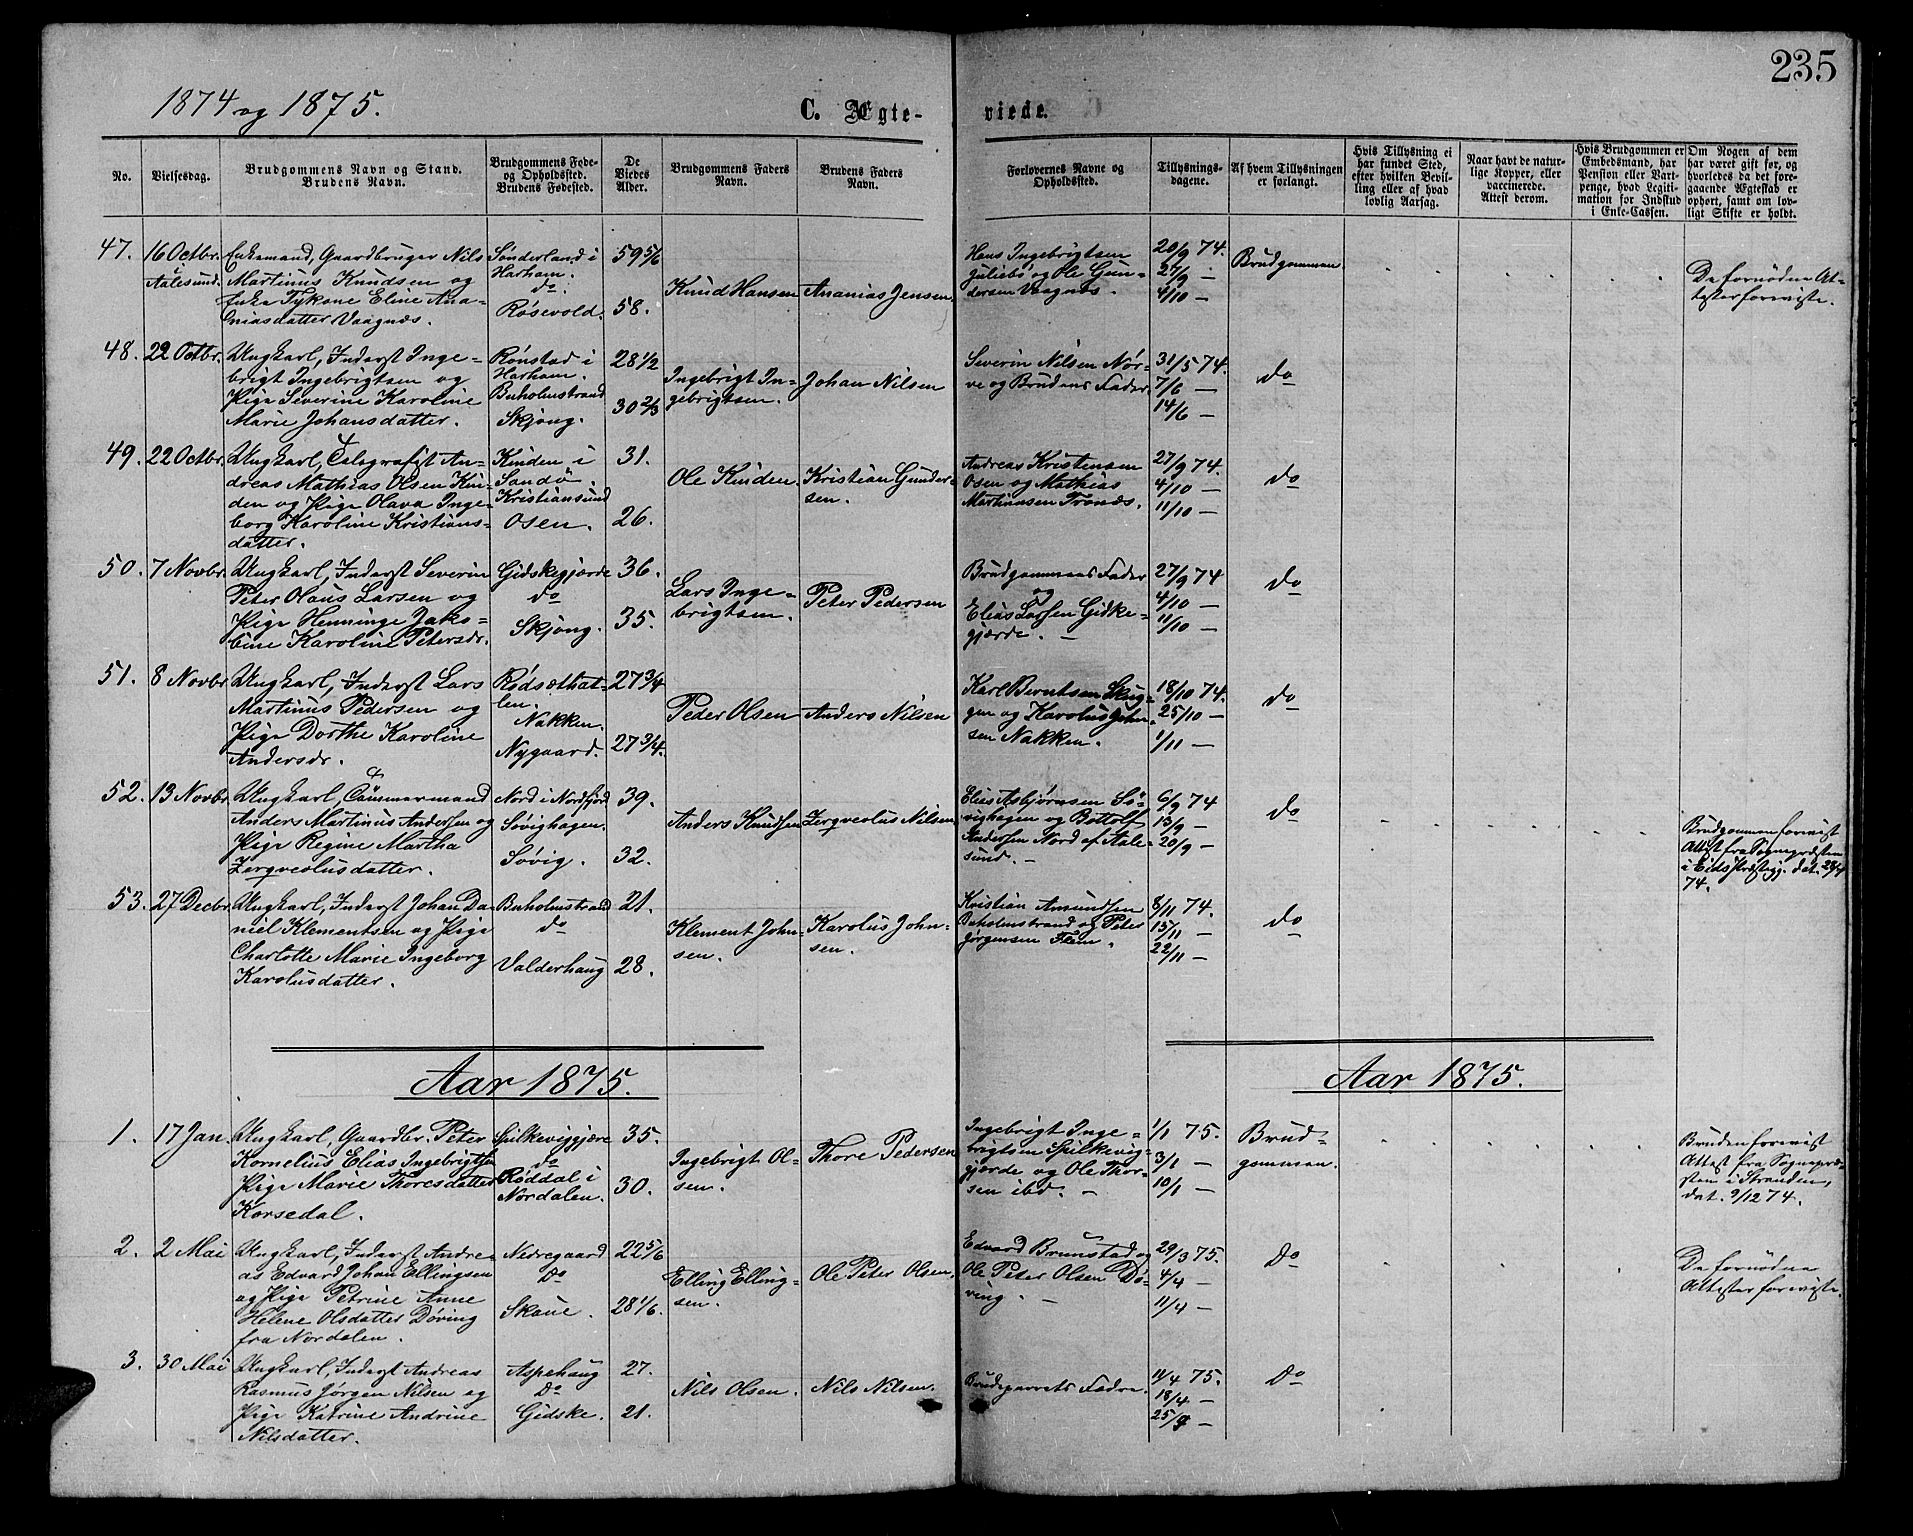 235
1874 og 1875.
C. Ægte-
viede.
No.
Vielsesdag.
Brudgommens Navn og Stand.
Brudens Navn.
Brudgommens Føde-
og Opholdssted.
Brudens Fødested.
De
Viedes
Alder.
Brudgommens Faders
Navn.
Brudens Faders
Navn.
Forlovernes Navne og
Opholdssted.
Tillysnings-
dagene.
Af hvem Tillysningen
er forlangt.
Hvis Tillysning ei
har fundet Sted,
efter hvilken Bevil-
ling eller af hvad
lovlig Aarsag.
Naar havt de natur-
lige Kopper, eller
vaccinerede.
Attest derom.
Hvis Brudgommen er
Embedsmand, har
Pension eller Vart-
penge, hvad Legiti-
mation for Indskud
i Enke-Cassen.
Om Nogen af dem
har været gift før, og
hvorledes da det fore-
gaaende Ægteskab er
ophørt, samt om lov-
ligt Skifte er holdt.
47.
16 Octbr.
Aalesund.
Enkemand, Gaardbruger Nils
Martinus Knudsen og
Enke Eline Ana-
niasdatter Vaagnæs.
Sønderland i
Harham.
do.
Røsevold.
59 5/6
58.
Knud Hansen
Ananias Jensen.
Hans Ingebrigtsen
Juliebø og Ole Gun-
dersen Vaagnæs.
20/9 74.
27/9 -
4/10 -
Brudgommen.
De fornødne At-
tester foreviste.
48.
22 Octbr.
Ungkarl, Inderst Inge-
brigt Ingebrigtsen og
Pige Severine Karoline
Marie Johansdatter.
Rønstad i
Harham.
Buholmstrand
Skjong.
28 1/2
30 2/3
Ingebrigt In-
gebrigtsen.
Johan Nilsen
Severin Nilsen Nør-
ve og Brudens Fader.
31/5 74.
7/6 -
14/6 -
do
49.
22 Octbr.
Ungkarl, Telegrafist An-
dreas Mathias Olsen Kin-
den og Pige Olava Inge-
borg Karoline Kristians-
datter.
Kinden i
Sandø.
Kristiansund
Osen.
31.
26.
Ole Kinden.
Kristian Gunder-
sen.
Andreas Kristensen
Osen og Mathias
Martinusen Tronæs.
27/9 74.
4/10 -
11/10 -
do
50.
7 Novbr.
Ungkarl, Inderst Severin
Peter Olaus Larsen og
Pige Henninge Jako-
bine Karoline Petersdr.
Gidskegjærde
do
Skjong.
36.
35.
Lars Inge-
brigtsen.
Peter Pedersen
Brudgommens Fader
og
Elias Larsen Gidke-
gjærde. -
27/9 74
4/10 -
11/10 -
do
51.
8 Novbr.
Ungkarl, Inderst Lars
Martinus Pedersen og
Pige Dorthe Karoline
Andersdr.
Rødsæthat-
len.
Nakken.
Nygaard.
27 3/4
27 3/4.
Peder Olsen
Anders Nilsen
Karl Berntsen Skug-
gen og Karolus Johan-
sen Nakken.
18/10 74.
25/10 -
1/11 -
do
52.
13 Novbr.
Ungkarl, Tømmermand
Anders Martinus Andersen og
Pige Regine Martha
Zergveolusdatter.
Nord i Nordfjord
Søvighagen.
Søvig.
39.
32.
Anders Knudsen
Zergveolus Nilsen
Elias Asbjørnsen Sø-
vighagen og Bottolf
Andersen Nord af Aale-
sund. -
6/9 74
13/9 -
20/9 -
do
Brudgommen forevist
Attest fra Sognepræsten
i Eids Præstegj. dat.
74.
53.
27 Decbr.
Ungkarl, Inderst Johan Da-
niel Klementsen og Pige
Charlotte Marie Ingeborg
Karolusdatter.
Buholmstrand
do
Valderhaug
21.
28.
Klement John-
sen.
Karolus John-
sen.
Kristian Amundsen
Buholmstrand og Peter
Jørgensen Flem.
8/11 74.
15/11 -
22/11 -
do
Aar 1875.
Aar 1875.
1.
17 Jan.
Ungkarl, Gaardbr. Peter
Kornelius Elias Ingebrigtsen
Pige Marie Thoresdatter
Korsedal.
Spilkeviggjære
do
Røddal i
Nordalen.
35.
30.
Ingebrigt Ol-
sen.
Thore Pedersen
Ingebrigt Inge-
brigtsen Spilkevig-
gjærde og Ole Thor-
sen ibd. -
1/1 75.
3/1 -
10/1 -
Brud-
gommen.
Bruden forevist
Attest fra Sognepræ-
sten i Stranden,
dat. 9/12 74.
2.
2 Mai
Ungkarl, Inderst Andre-
as Edvard Johan Ellingsen
og Pige Petrine Anne
Helene Olsdatter Døving
fra Nordalen.
Nedregaard
Do
Skaue.
22 5/6
28 1/6.
Elling Elling-
sen.
Ole Peter Olsen,
Edvard Brunstad og
Ole Peter Olsen Dø-
ving. -
29/3 75.
4/4 -
11/4 -
Do
De fornødne
Attester foreviste.
3.
30 Mai
Ungkarl, Inderst Andreas
Rasmus Jørgen Nilsen og
Pige Katrine Andrine
Nilsdatter.
Aspehaug
Do
Gidske.
27.
21.
Nils Olsen.
Nils Nilsen.
Brudeparrets Fædre.
11/4 75.
18/4 -
25/4 -
Do